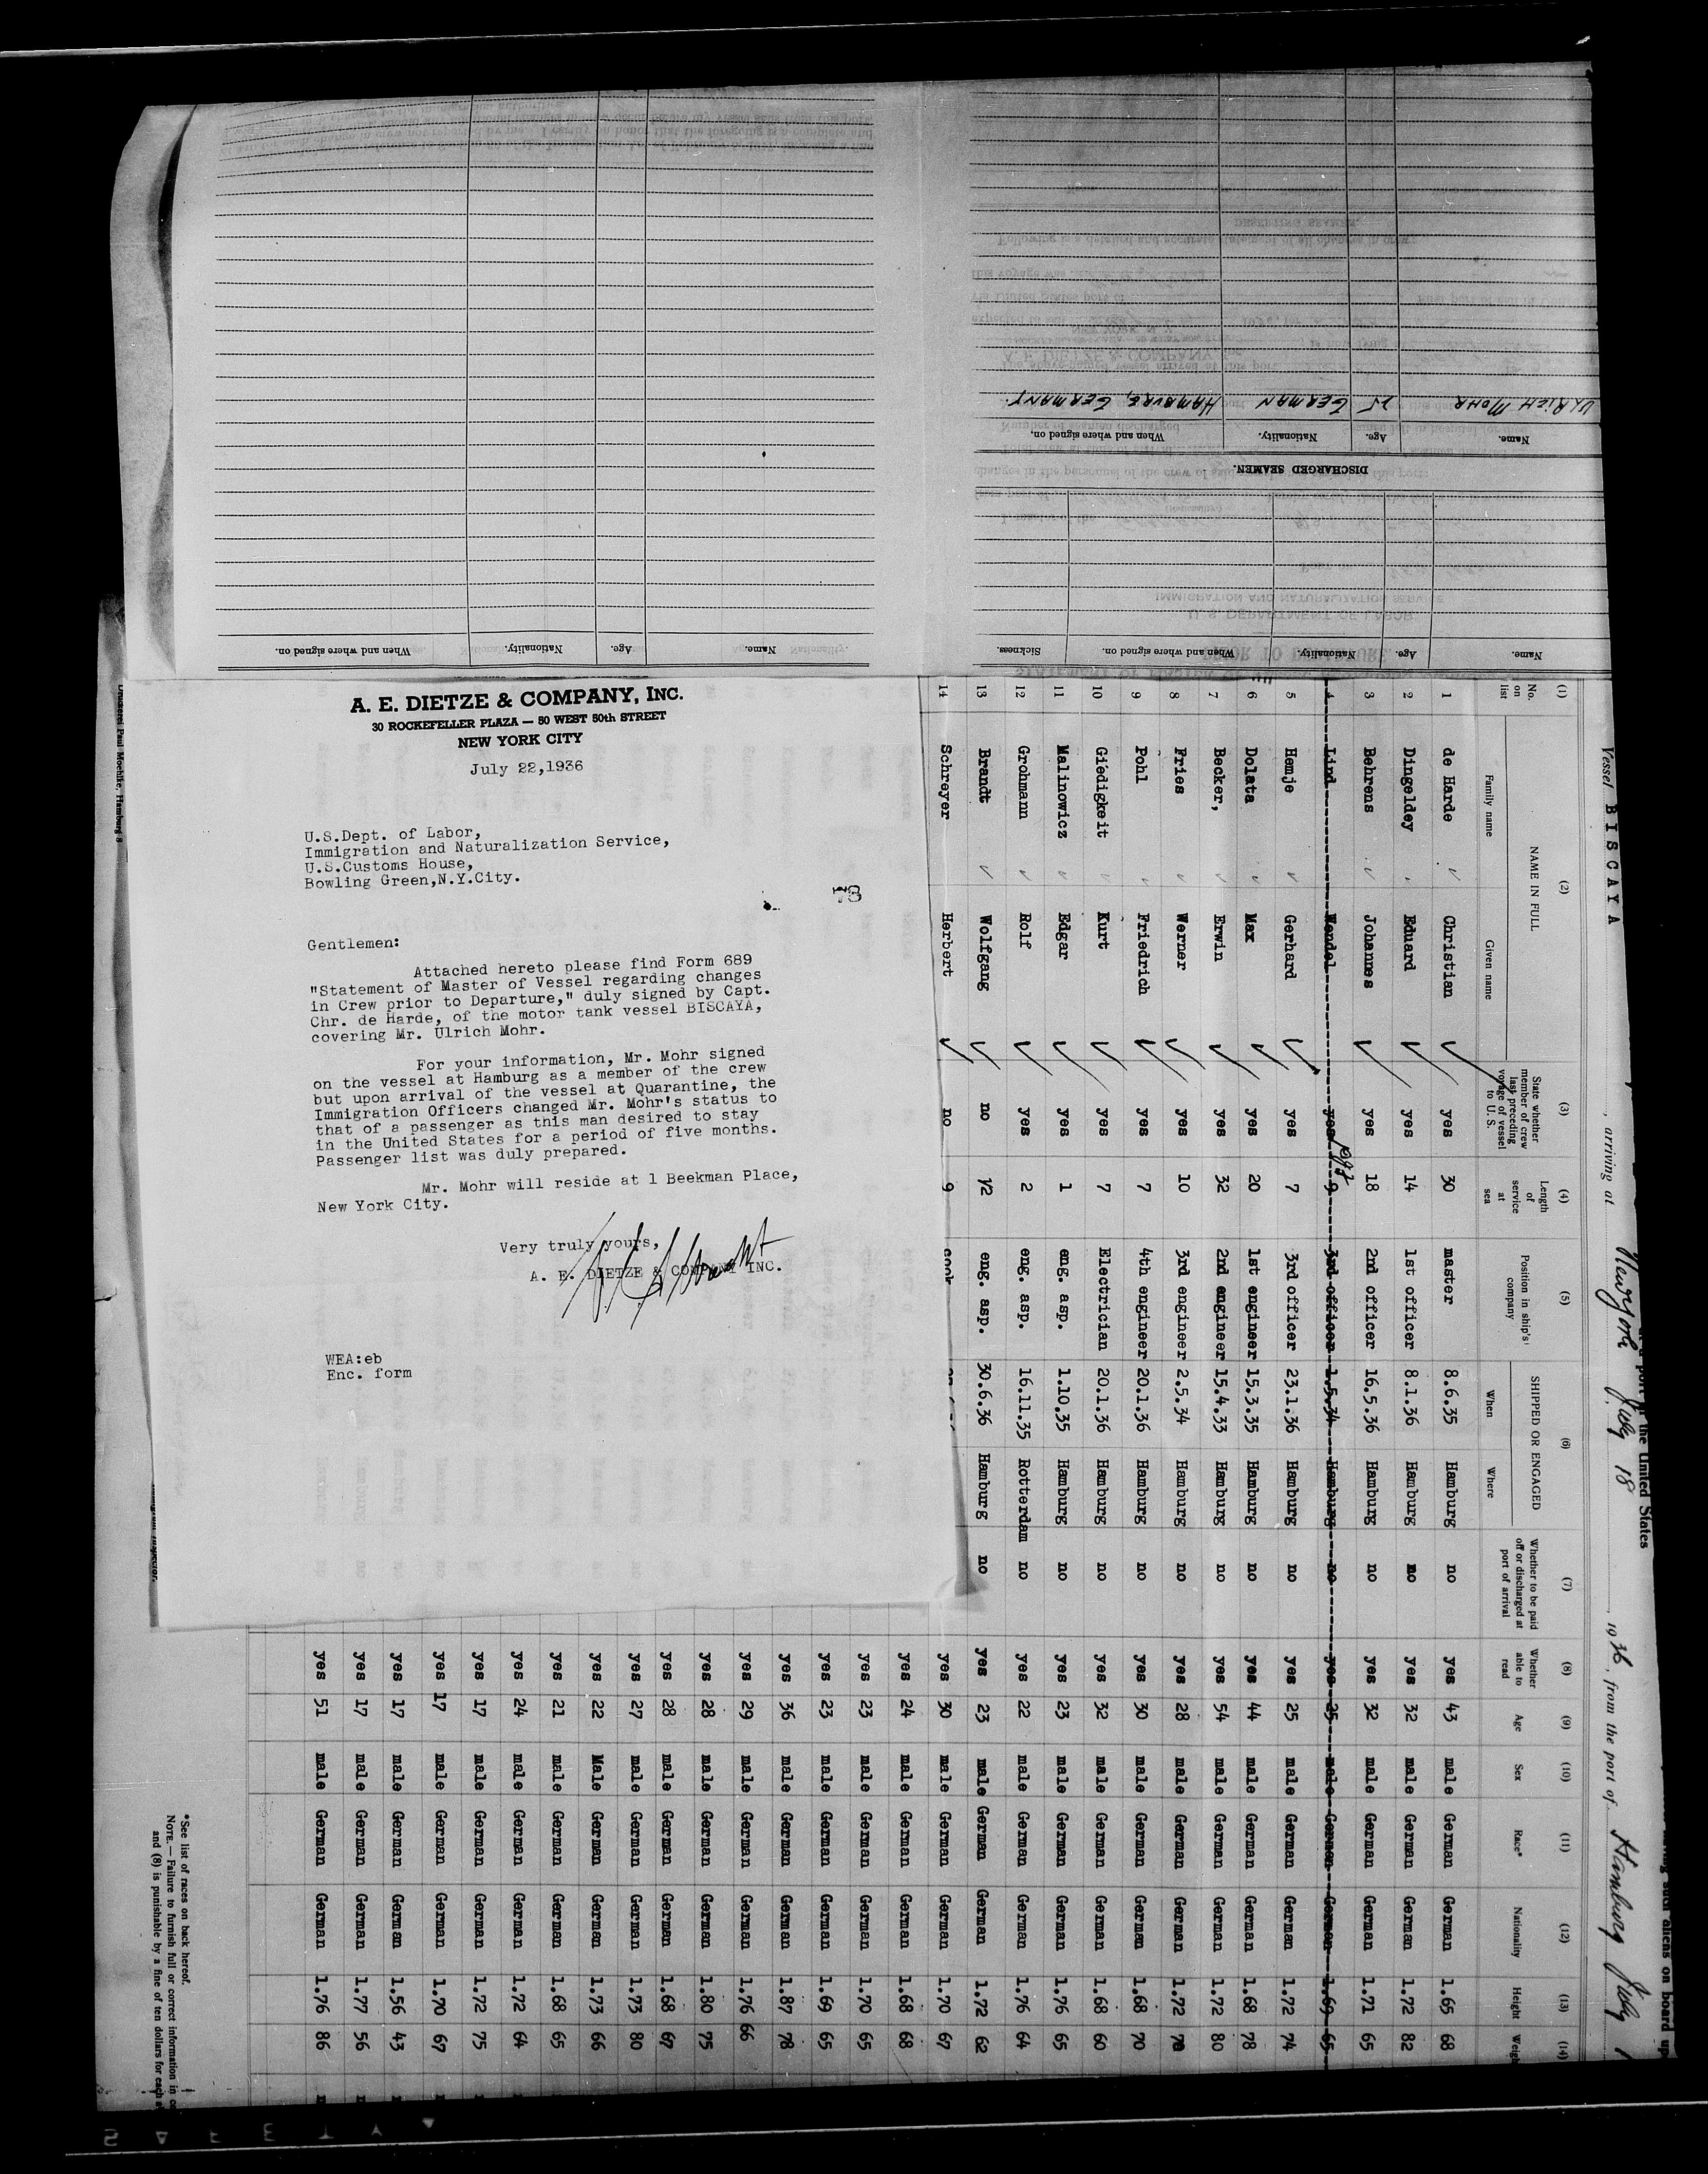 A. E. DIETZE & COMPANY, INC.
30 ROCKEFELLER PLAZA — 50 WEST 50th STREET
NEW YORK CITY
July 22,1936
U.S.Dept. of Labor,
Immigration and Naturalization Service,
U.S.Customs House,
Bowling Green,N.Y.City.
78
Gentlemen:
Attached hereto please find Form 689
"Statement of Master of Vessel regarding changes
in Crew prior to Departure," duly signed by Capt.
Chr. de Harde, of the motor tank vessel BISCAYA,
covering Mr. Ulrich Mohr.
For your information, Mr. Mohr signed
on the vessel at Hamburg as a member of the crew
but upon arrival of the vessel at Quarantine, the
Immigration Officers changed Mr. Mohr's status to
that of a passenger as this man desired to stay
in the United States for a period of five months.
Passenger list was duly prepared.
Mr. Mohr will reside at 1 Beekman Place,
New York City.
Very truly yours,
A. E. DIETZE & COMPANY INC.
WEA:eb
Enc. form
Name. Age. Nationality. When and where signed on. Sickness.
Name. Age. Nationality. When and where signed on.
DISCHARGED SEAMEN.
Name. Age. Nationality. When and where signed on,
ULRICH MOHR 25 GERMAN HAMBURG, GERMANY.
Vessel BISCAYA, arriving at New York July 18, 1936, from the port of Hamburg July 1
(1) (2) (3) (4) (5) (6) (7) (8) (9) (10) (11) (12) (13) (14)
No. on list NAME IN FULL Family name Given name State whether member of crew last preceding voyage of vessel to U. S. Length of service at sea Position in ship's company SHIPPED OR ENGAGED When Where Whether to be paid off or discharged at port of arrival Whether able to read Age Sex Race* Nationality Height
1 de Harde Christian yes 30 master 8.6.35 Hamburg no yes 43 male German German 1.65 68
2 Dingeldey Eduard yes 14 1st officer 8.1.36 Hamburg no yes 32 male German German 1.72 82
3 Behrens Johannes yes 18 2nd officer 16.5.36 Hamburg no yes 32 male German German 1.71 65
4 Lird Wendel yes 9 3rd officer 1.5.34 Hamburg no yes 25 male German German 1.69 65
5 Hemje Gerhard yes 7 3rd officer 23.1.36 Hamburg no yes 25 male German German 1.72 74
6 Dolata Max yes 20 1st engineer 15.3.35 Hamburg no yes 44 male German German 1.68 78
7 Becker, Erwin yes 32 2nd engineer 15.4.33 Hamburg no yes 54 male German German 1.72 80
8 Fries Werner yes 10 3rd engineer 2.5.34 Hamburg no yes 28 male German German 1.72
9 Pohl Friedrich yes 7 4th engineer 20.1.36 Hamburg no yes 30 male German German 1.68 70
10 Giedigkeit Kurt yes 7 Electrician 20.1.36 Hamburg no yes 32 male German German 1.68 60
11 Malinowicz Edgar yes 1 eng. asp. 1.10.35 Hamburg no yes 23 male German German 1.76 65
12 Grohmann Rolf yes 2 eng. asp. 16.11.35 Rotterdam no yes 22 male German German 1.76 64
13 Brandt Wolfgang no 1/2 eng. asp. 30.6.36 Hamburg no yes 23 male German German 1.72 62
14 Schreyer Herbert no 9 cook yes 30 male German German 1.70 67
yes 24 male German German 1.68 68
yes 23 male German German 1.70 65
yes 23 male German German 1.69 65
yes 36 male German German 1.87 78
yes 29 male German German 1.76 66
yes 28 male German German 1.80 75
yes 28 male German German 1.68 67
yes 27 male German German 1.73 80
yes 22 Male German German 1.73 66
yes 21 male German German 1.68 65
yes 24 male German German 1.72 64
yes 17 male German German 1.72 75
yes 17 male German German 1.70 67
yes 17 male German German 1.56 43
yes 17 male German German 1.77 56
yes 51 male German German 1.76 86
*See list of races on back hereof.
NOTE.—Failure to furnish full or correct information in
and (8) is punishable by a fine of ten dollars for each
Druckerei Paul Moehlke, Hamburg 8
SAFETY